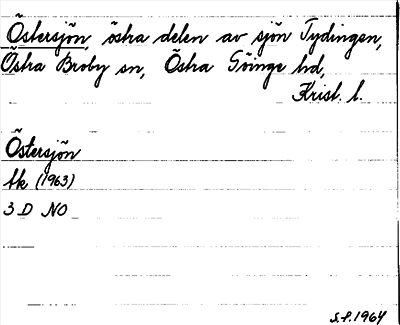 Östersjön, östra delen av sjön Tydingen,
Östra Broby sn, Östra Göinge hd,
Krist. l.
Östersjön
tk (1963)
3 D NO
S.f. 1964